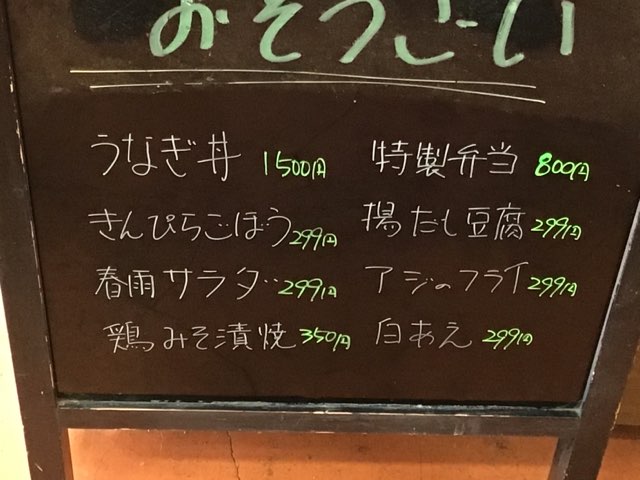 おそうざい
うなぎ丼 1500円 特製弁当 800円
きんぴらごぼう 299円 揚だし豆腐 299円
春雨サラダ 299円 アジのフライ 299円
鶏みそ漬焼 350円 白あえ 299円